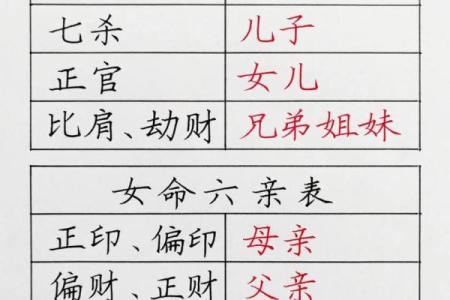 七杀 儿子
正官 女儿
比肩、劫财 兄弟姐妹
女命六亲表
正印、偏印 母亲
偏财、正财 父亲